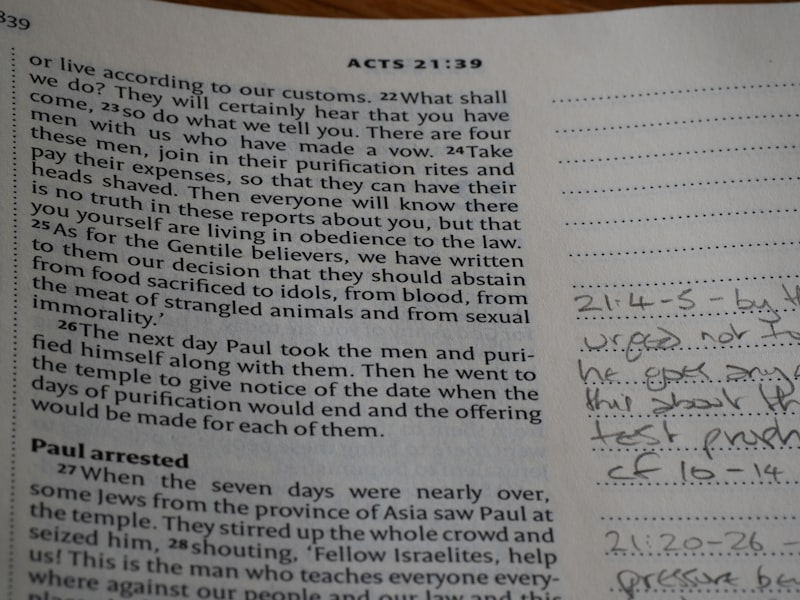 839
ACTS 21:39
or live according to our customs. 22 What shall
we do? They will certainly hear that you have
come, 23 so do what we tell you. There are four
men with us who have made a vow. 24 Take
these men, join in their purification rites and
pay their expenses, so that they can have their
heads shaved. Then everyone will know there
is no truth in these reports about you, but that
you yourself are living in obedience to the law.
25 As for the Gentile believers, we have written
to them our decision that they should abstain
from food sacrificed to idols, from blood, from
the meat of strangled animals and from sexual
immorality.’
26 The next day Paul took the men and puri-
fied himself along with them. Then he went to
the temple to give notice of the date when the
days of purification would end and the offering
would be made for each of them.
Paul arrested
27 When the seven days were nearly over,
some Jews from the province of Asia saw Paul at
the temple. They stirred up the whole crowd and
seized him, 28 shouting, ‘Fellow Israelites, help
us! This is the man who teaches everyone every-
where against our people and our law and this
21:4-5 - by
urged not to
he goes
this about
test
cf 10-14
21:20-26 -
pressure